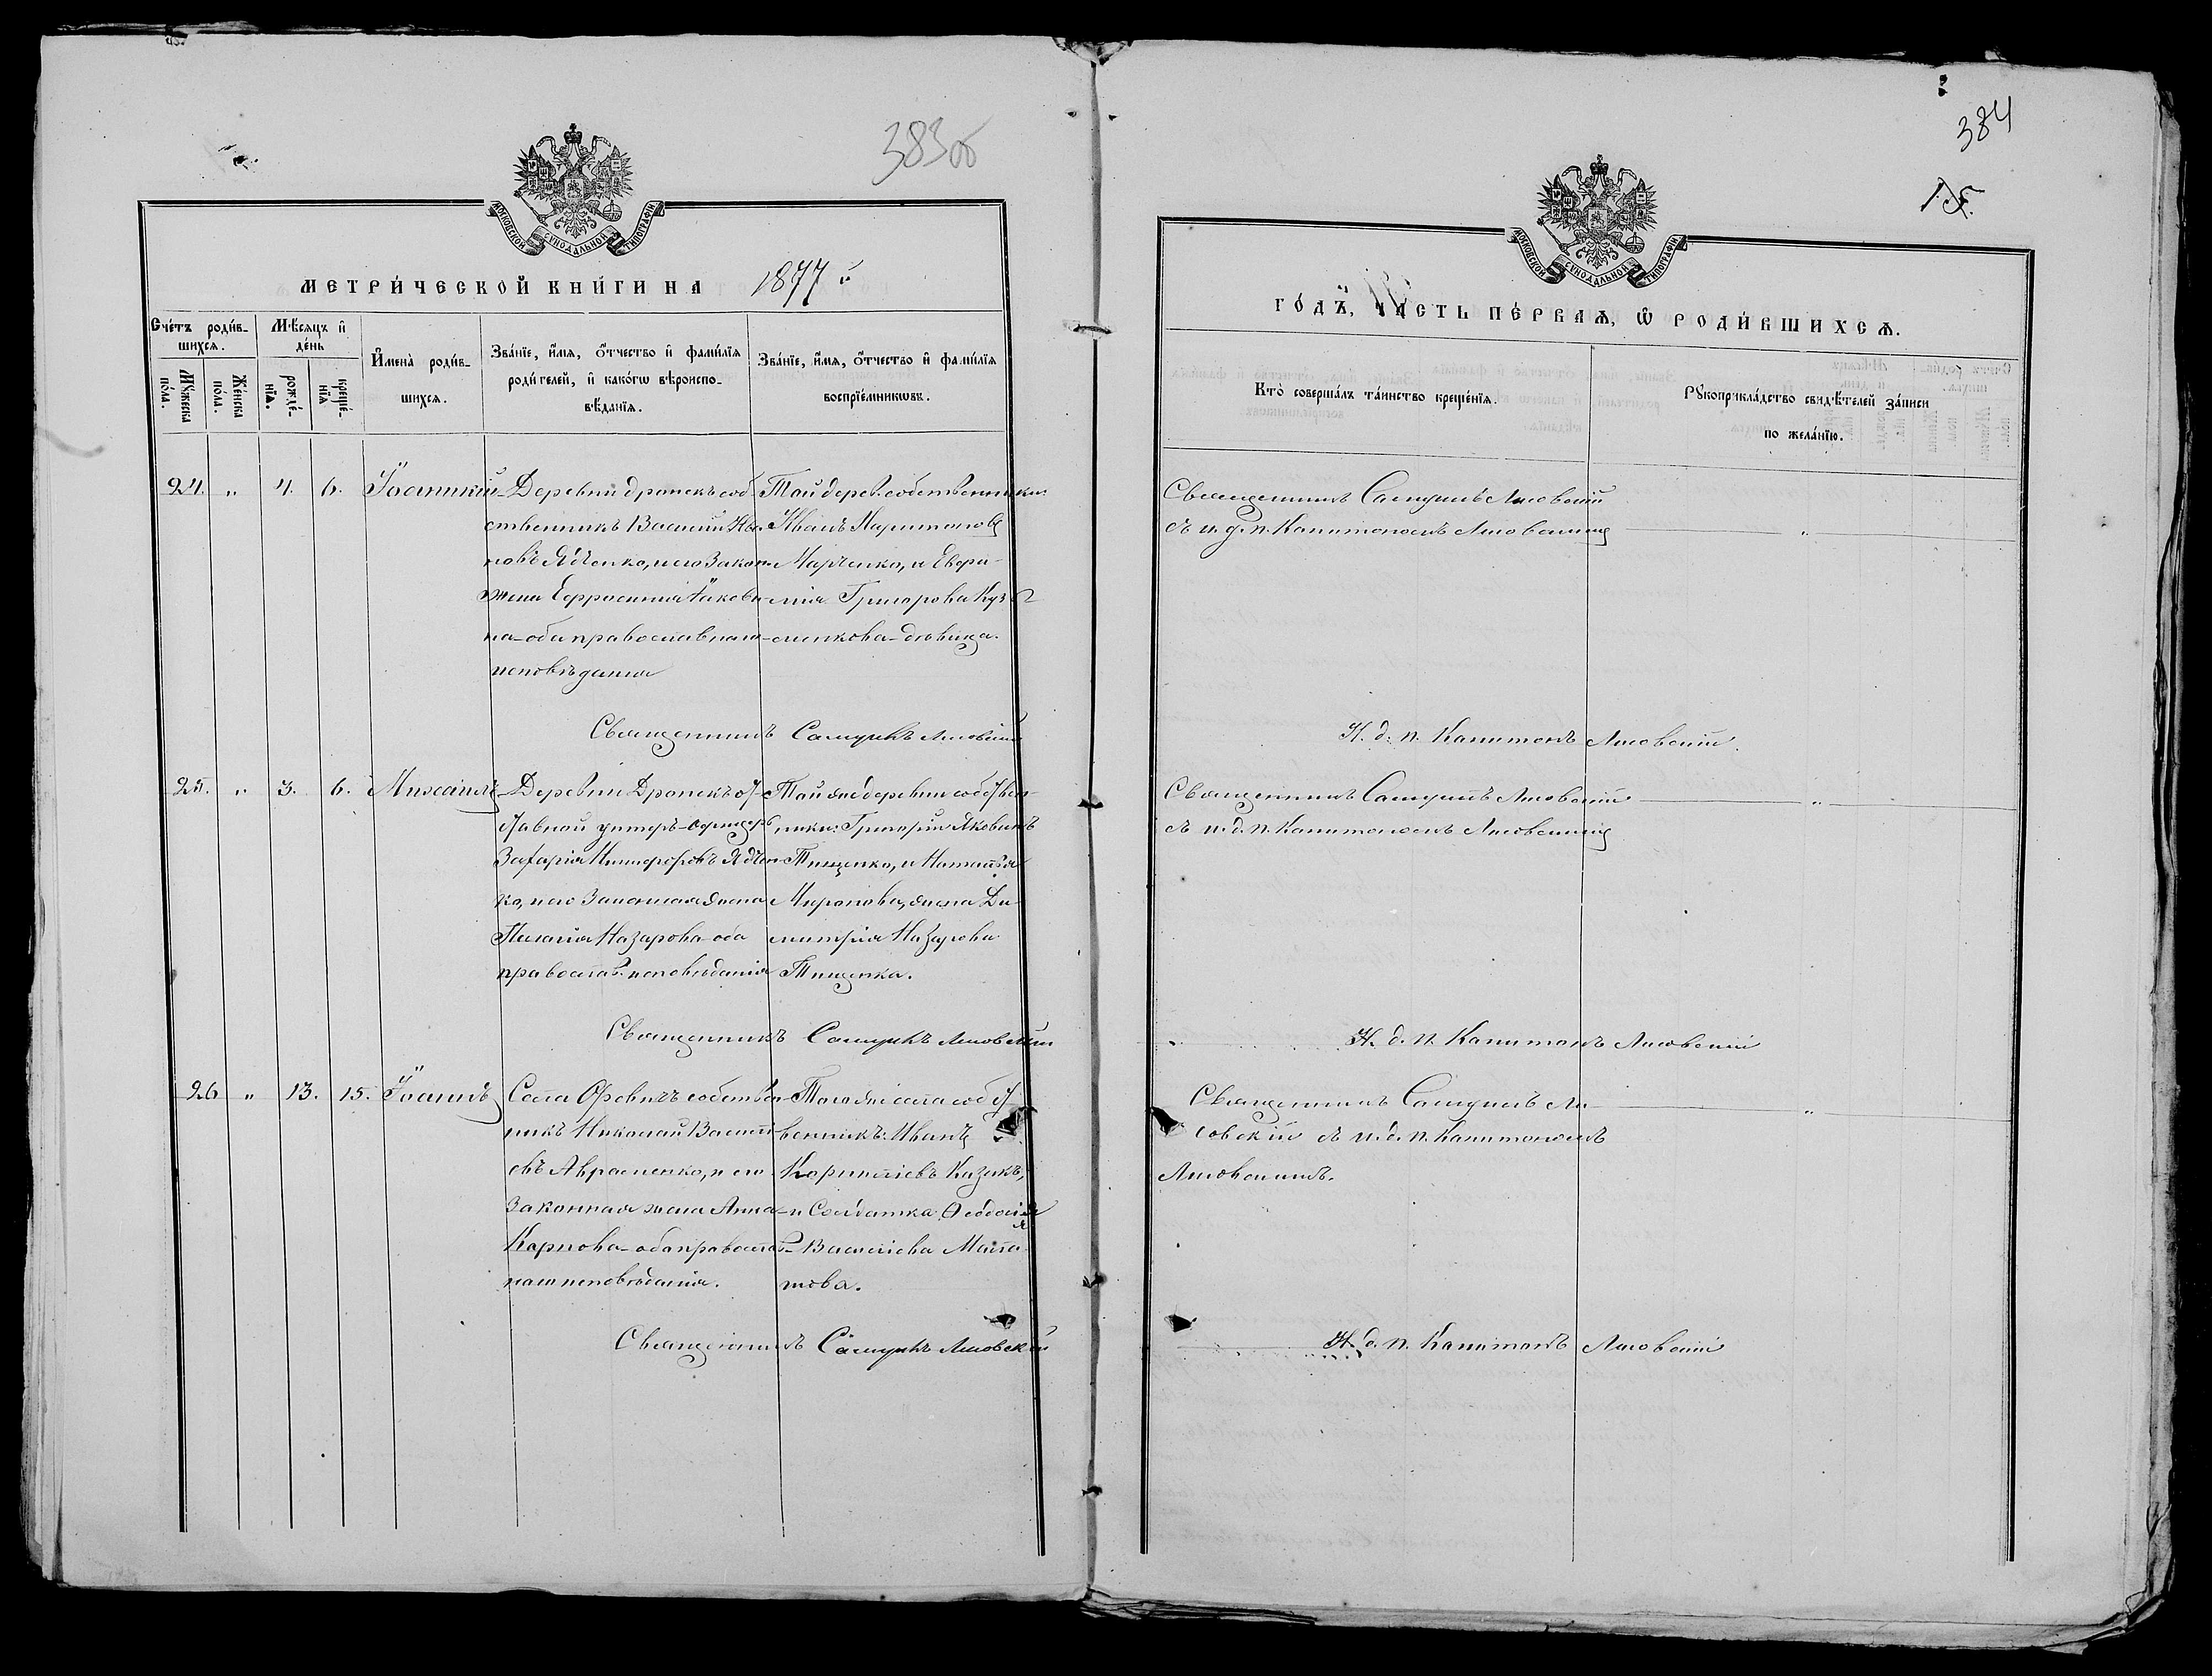 383об
МОСКОВСКОЙ СѴНОДАЛЬНОЙ ТИПОГРАФІИ
МЕТРИ́ЧЕСКОЙ КНИ́ГИ НА 1877 й
Сче́тъ роди́в-
шихся.
Мѣ́сяцъ и҆
де́нь
Мꙋ́жеска по́ла.
Же́нска по́ла.
рожде́-
нїѧ.
креще́-
нїѧ
И҆мена̀ роди́в-
шихся.
Зва́нїе, и҆́мѧ, ѻ҆́тчество и҆ фами́лїѧ
роди́телей, и҆ како́гѡ вѣроиспо-
вѣ́данїѧ.
Зва́нїе, и҆́мѧ, ѻ҆́тчество и҆ фами́лїѧ
воспрїе́мникѡвъ.
24. „ 4. 6. Іоанникій
Деревни Дронекъ соб-
ственникъ Василій Ива-
новъ Ядченко, и его закон-
жена Евфросинія Іакова
на-оба православнаго
исповѣданія
Той дерев. собственники:
Иванъ Харитоновъ
Марченко, и Евфи-
мія Григорова Кузь-
менкова-дѣвица.
Священникъ Самуилъ Лисовскій
25. „ 3. 6. Михаилъ
Деревни Дронекъ от-
ставной унтеръ-офицеръ
Захарія Никифоровъ Ядчен-
ко, и его законная жена
Пелагія Назарова-оба
православ. исповѣданія
Той же деревни собствен-
ники: Григорій Яковлевъ
Тищенко, и Наталія
Миронова, жена Ди-
митрія Назарова
Тищенка.
Священникъ Самуилъ Лисовскій
26 „ 13. 15. Іоаннъ
Села Оревичъ собствен-
никъ Николай Василі
евъ Авраменко, и его
законная жена Анна
Карпова-оба православ-
наго исповѣданія.
Того же села собст-
венникъ: Иванъ
Корниліевъ Казакъ,
и солдатка Ѳеодосія
Василіева
това.
Священникъ Самуилъ Лисовскій
384
15.
МОСКОВСКОЙ СѴНОДАЛЬНОЙ ТИПОГРАФІИ
ГО́ДЪ, ЧА́СТЬ ПЕ́РВАѦ, Ѡ҆ РОДИ́ВШИХСѦ.
Кто̀ соверша́лъ та́инство креще́нїѧ.
Рꙋкоприкла́дство свидѣ́телей за́писи
по жела́нїю.
Священникъ Самуилъ Лисовскій
съ и. д. п. Капитономъ Лисовскимъ
И. д. п. Капитонъ Лисовскій.
Священникъ Самуилъ Лисовскій
съ и. д. п. Капитономъ Лисовскимъ
И. д. п. Капитонъ Лисовскій
Священникъ Самуилъ Ли-
совскій съ и. д. п. Капитономъ
Лисовскимъ.
И. д. п. Капитонъ Лисовскій